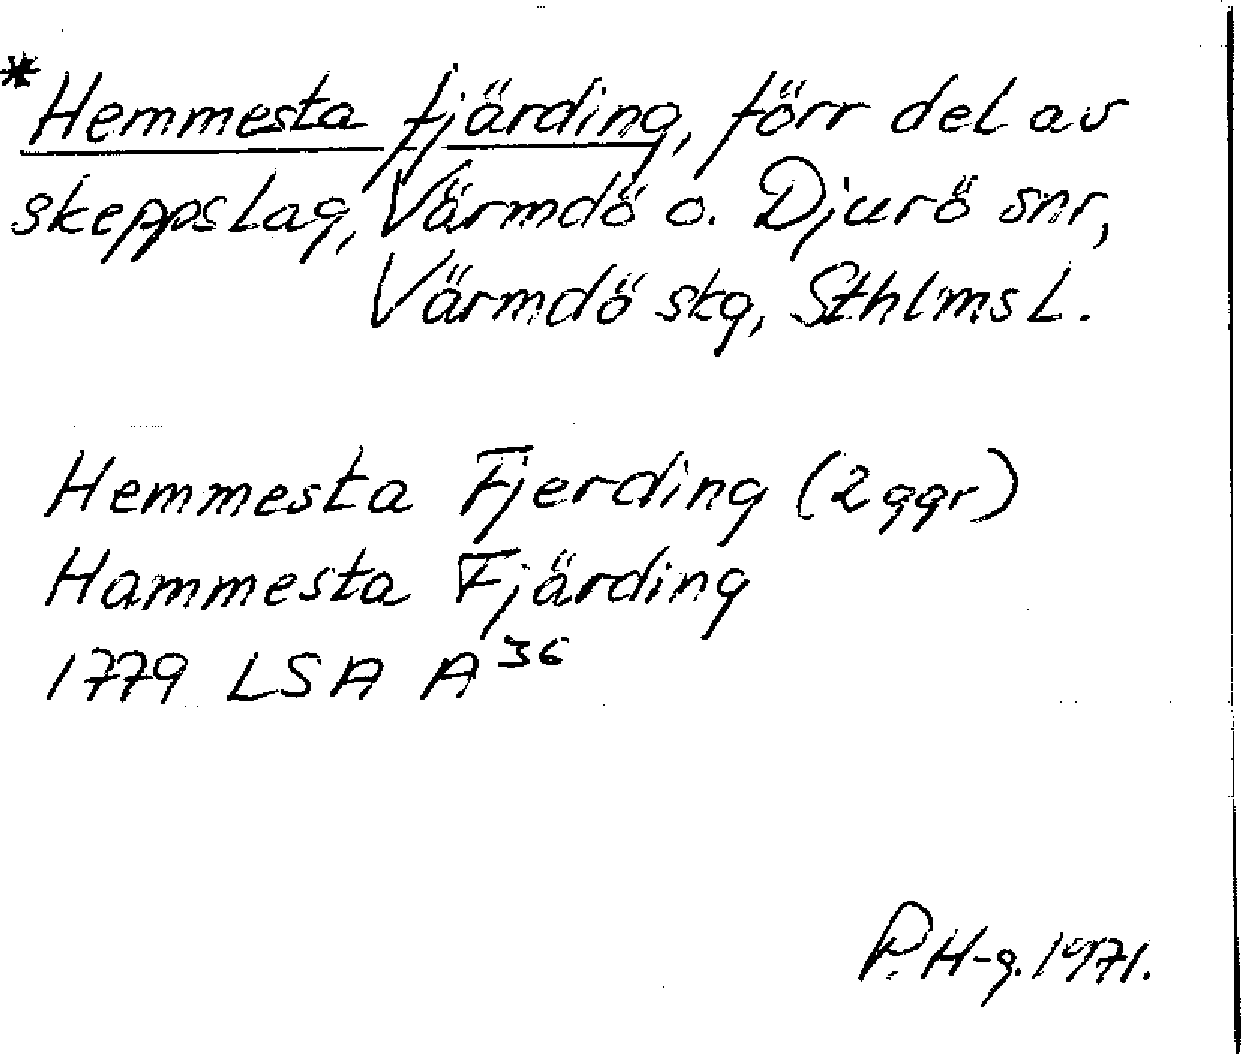 *Hemmesta fjärding, förr del av
skeppslag, Värmdö o. Djurö snr,
Värmdö skg, Sthlms L.
Hemmesta Fjerding (2 ggr)
Hammesta Fjärding
1779 LSA A³⁶
P. H-g. 1971.